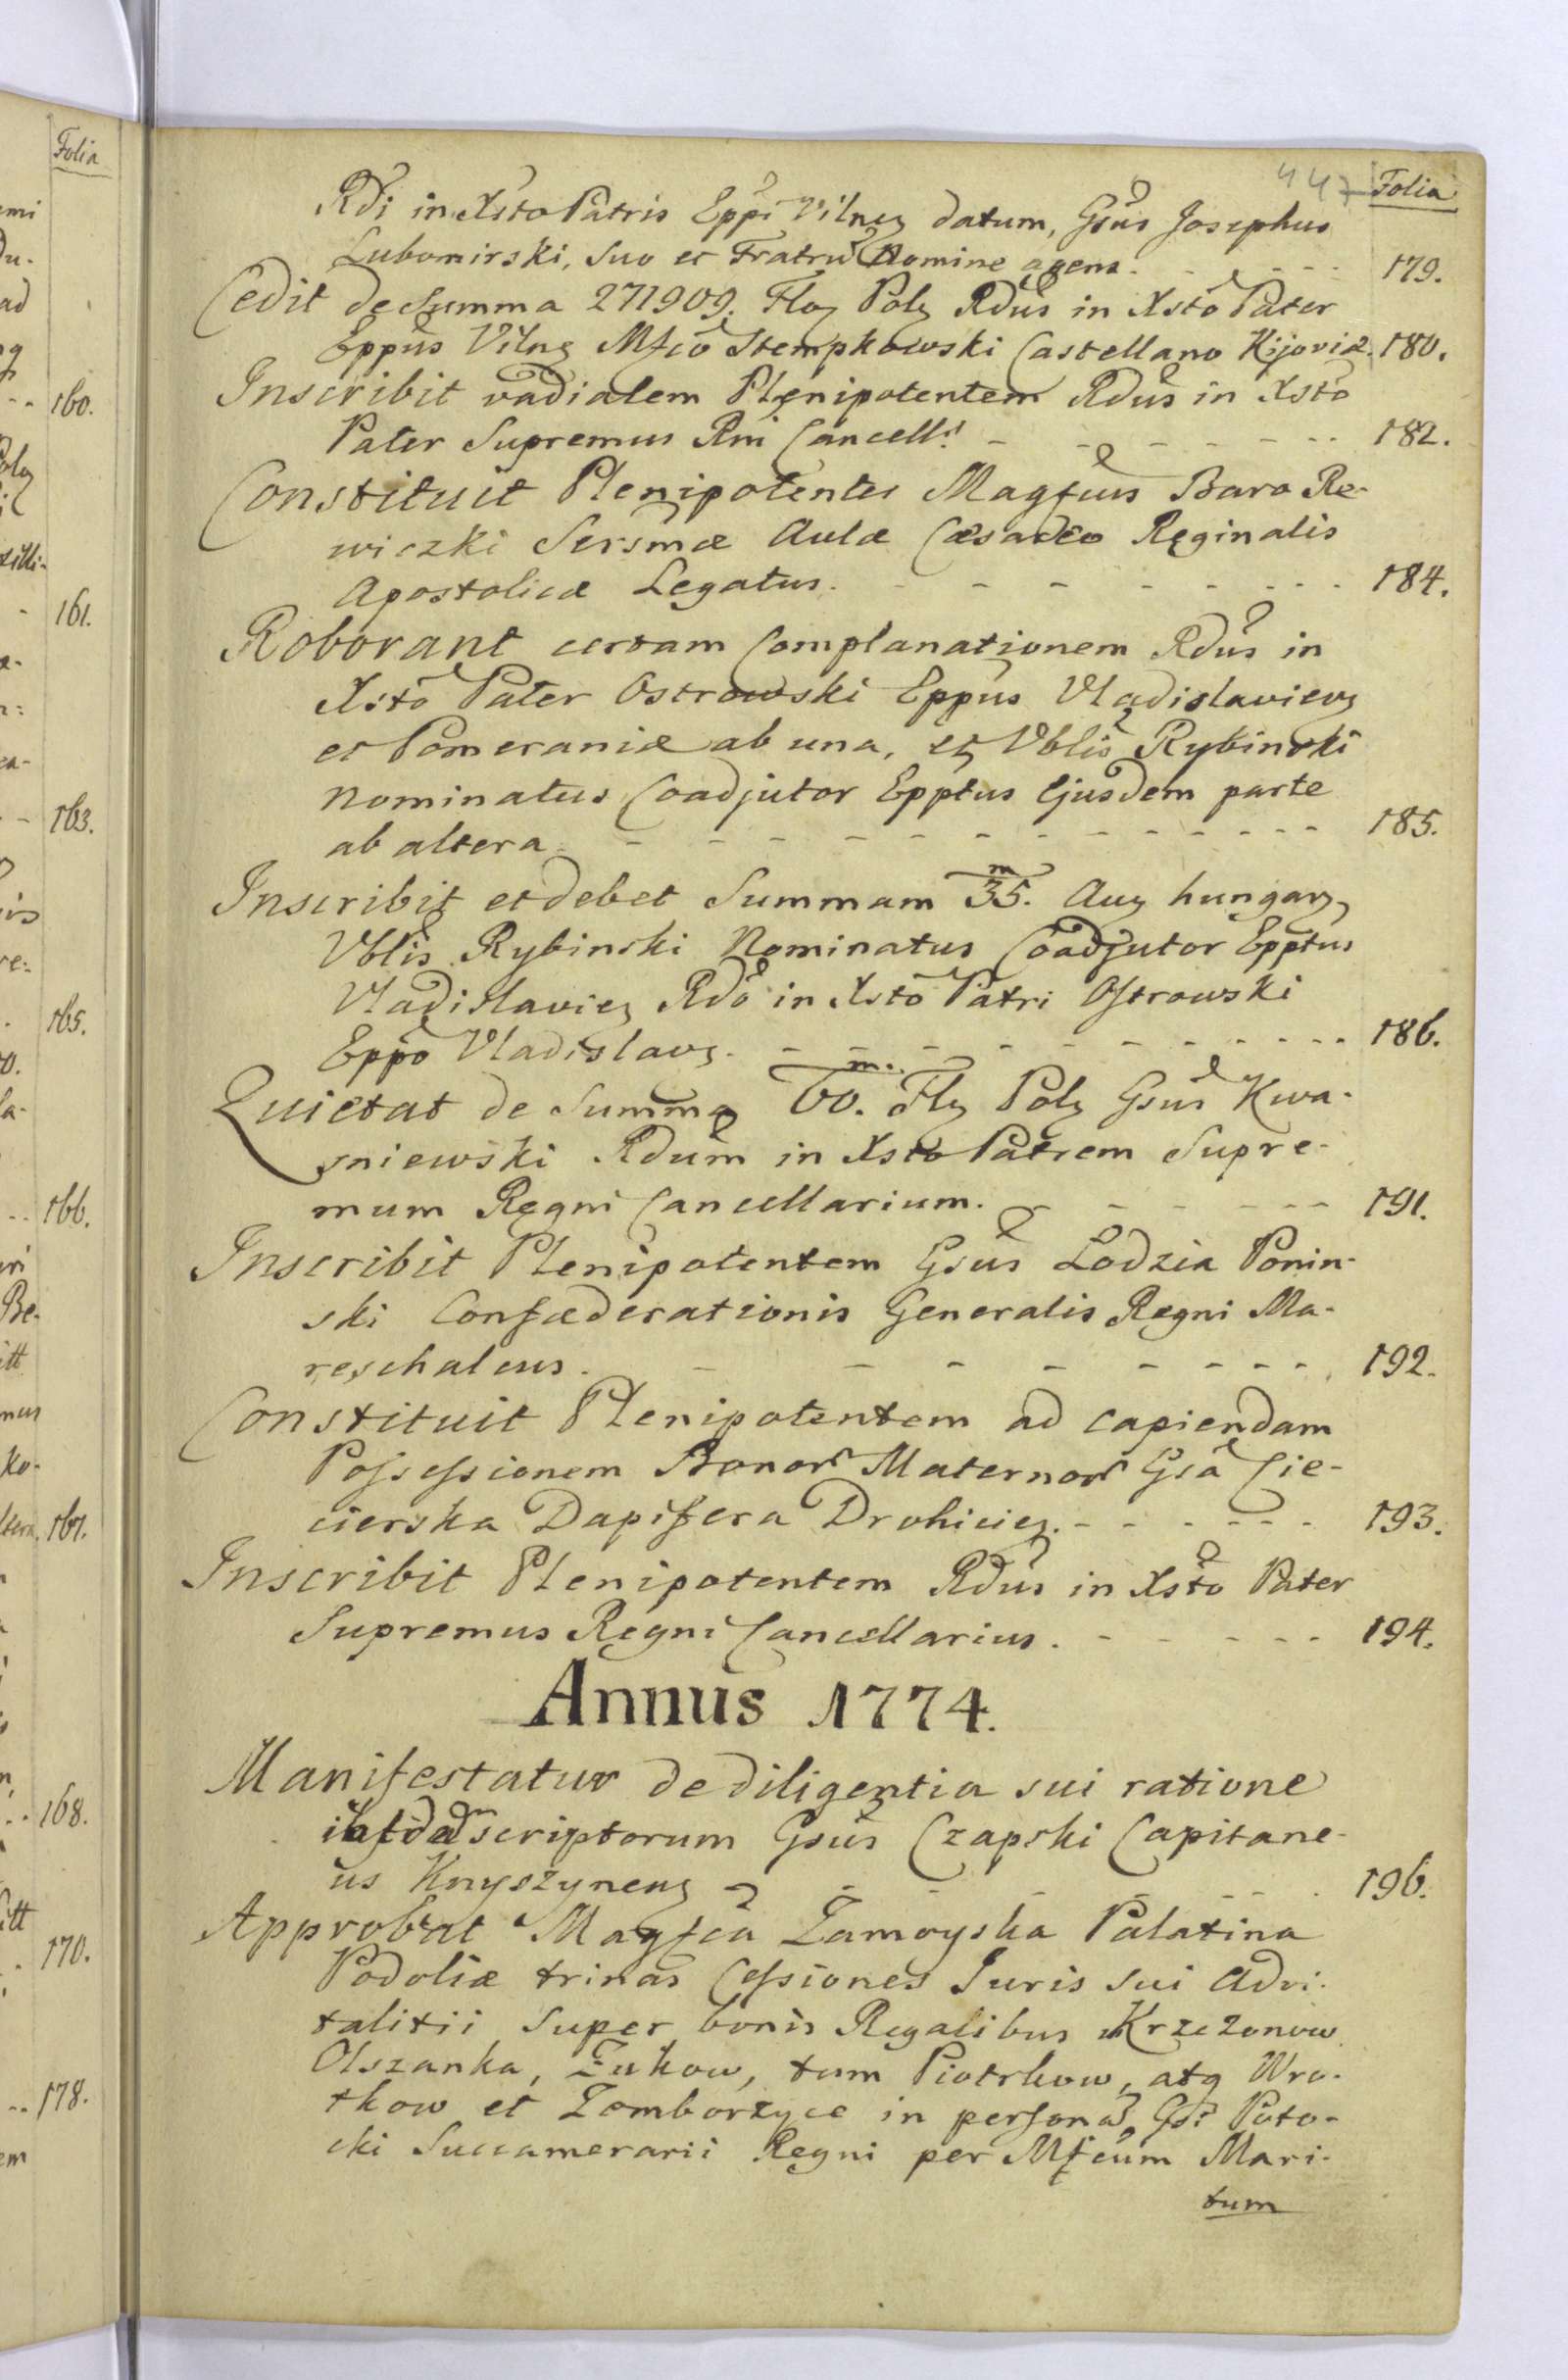 447 Folia
Rdi in Xsto Patris Eppi Vilnen datum, Gsus Josephus
Lubomirski, suo et Fratru Nomine agens. - - - - 179.
Cedit de Summa 271909. Flor Pol Rdus in Xsto Pater
Eppus Viln Mfco Stempkowski Castellano Kijoviæ. 180.
Inscribit vadialem Plenipotentem Rdus in Xsto
Pater Supremus Rni Cancell: - - - - - - 182.
Constituit Plenipotentes Magfcus Baro Re-
wiczki Sersmæ Aulæ Cæsareo Reginalis
Apostolicæ Legatus. - - - - - - - 184.
Roborant certam Complanationem Rdus in
Xsto Pater Ostrowski Eppus Vladislavien
et Pomeraniæ ab una, et Vblis Rybinski
Nominatus Coadjutor Epptus Ejusdem parte
ab altera - - - - - - - - - - - 185.
Inscribit et debet Summam 35.m Aur hungar,
Vblis Rybinski Nominatus Coadjutor Epptus
Vladislavien Rdo in Xsto Patri Ostrowski
Eppo Vladislav. - - - - - - - - - 186.
Quietat de Summa 60.m Fl Pol Gsus Kwa-
sniewski Rdum in Xsto Patrem Supre-
mum Regni Cancellarium. - - - - - - 191.
Inscribit Plenipotentem Gsus Lodzia Ponin-
ski Confæderationis Generalis Regni Ma-
reschalcus. - - - - - - - - 192.
Constituit Plenipotentem ad capiendam
Possessionem Bonor Maternor Gsa Cie-
cierska Dapifera Drohicien. - - - - - - 193.
Inscribit Plenipotentem Rdus in Xsto Pater
Supremus Regni Cancellarius. - - - - - 194.
Annus 1774.
Manifestatur de diligentia sui ratione
scriptorum Gsus Czapski Capitane-
us Knyszynen - - - - - - 196.
Approbat Magfca Zamoyska Palatina
Podoliæ trinas Cessiones Juris sui Advi-
talitii super bonis Regalibus Krzczonow
Olszanka, Zukow, tum Piotrkow, atq Wro-
tkow et Zemborzyce in persona Gsi Poto-
cki Succamerarii Regni per Mfcum Mari-
tum
Folia
160.
161.
163.
165.
166.
167.
168.
170.
178.